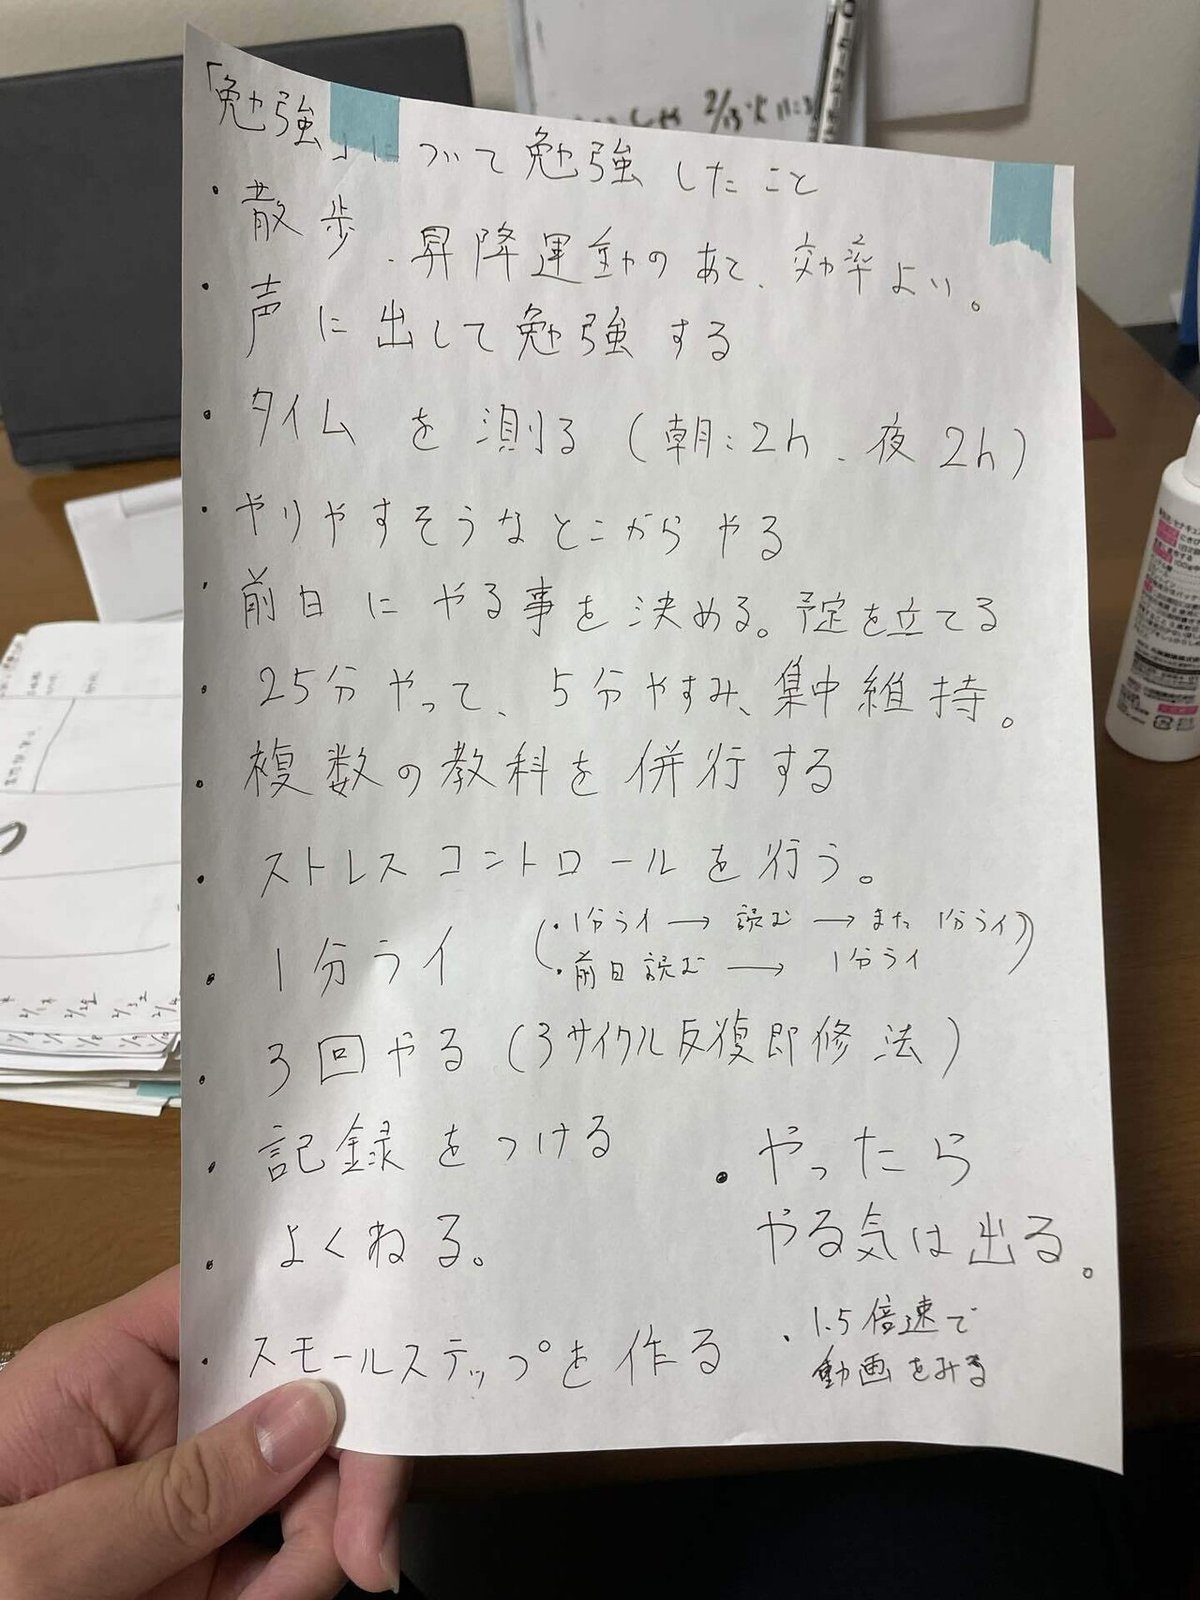 「勉強」について勉強したこと
・散歩、昇降運動のあと、効率よい。
・声に出して勉強する
・タイムを測る(朝:2h、夜2h)
・やりやすそうなとこからやる
・前日にやる事を決める。予定を立てる
・25分やって、5分やすみ、集中維持。
・複数の教科を併行する
・ストレスコントロールを行う。
・1分ライ
(・1分ライ→読む→また1分ライ)
・前日読む→1分ライ
・3回やる(3サイクル反復即修法)
・記録をつける
・よくねる。
・スモールステップを作る
・やったら
やる気は出る。
・1.5倍速で
動画をみる
2/13